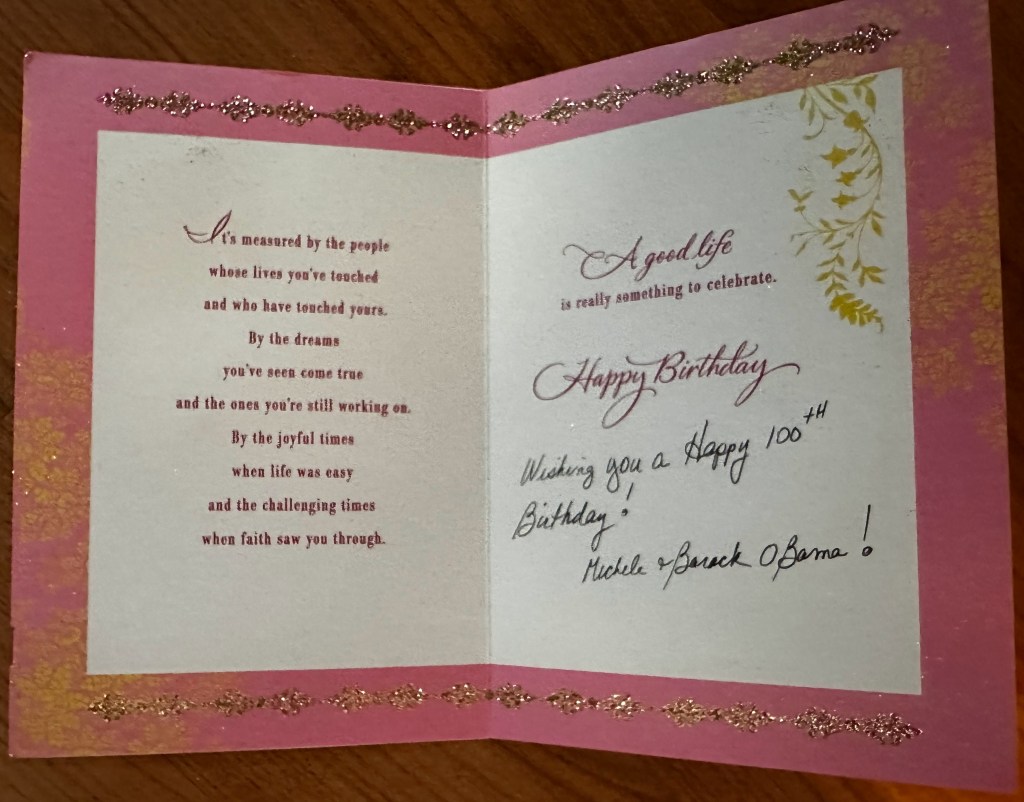 It's measured by the people
whose lives you've touched
and who have touched yours.
By the dreams
you've seen come true
and the ones you're still working on.
By the joyful times
when life was easy
and the challenging times
when faith saw you through.
A good life
is really something to celebrate.
Happy Birthday
Wishing you a Happy 100TH
Birthday!
Michele & Barack OBama!